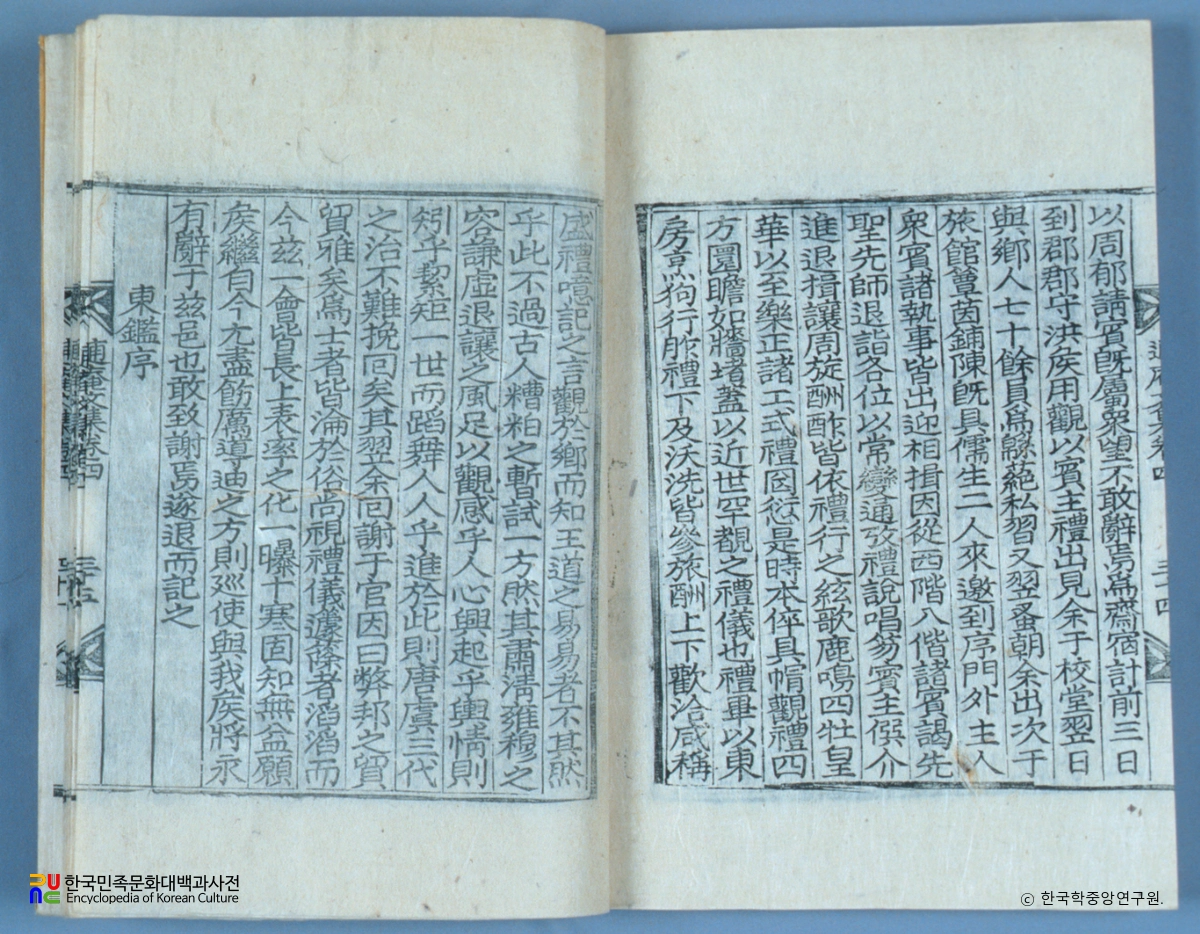 以周郁請賓旣屬衆望不敢辭焉爲齋宿計前三日
到郡郡守洪侯用觀以賓主禮出見余于校堂翌日
與鄕人七十餘員爲緜蕝私習又翌蚤朝余出次于
旅館簟茵鋪陳旣具儒生二人來邀到序門外主人
衆賓諸執事皆出迎相揖因從西階八偕諸賓謁先
聖先師退詣各位以常變通攷禮說唱笏賓主僎介
進退揖讓周旋酬酢皆依禮行之絃歌鹿鳴四牡皇
華以至樂正諸工式禮囙愆是時本倅具帽觀禮四
方圜瞻如牆堵蓋以近世罕覩之禮儀也禮畢以東
房烹狗行胙禮下及沃洗皆參旅酬上下歡洽咸稱
盛禮噫記之言觀於鄕而知王道之易易者不其然
乎此不過古人糟粕之暫試一方然其肅淸雍穆之
容謙虛退讓之風足以觀感乎人心興起乎輿情則
矧乎絜矩一世而蹈舞人人乎進於此則唐虞三代
之治不難挽回矣其翌余回謝于官因曰弊邦之貿
貿雅矣爲士者皆淪於俗尚視禮儀籧篨者滔滔而
今玆一會皆長上表率之化一曝十寒固知無益願
侯繼自今尤盡飭厲導迪之方則廵使與我侯將永
有辭于玆邑也敢致謝焉遂退而記之
東鑑序
文集卷四
三十五
한국민족문화대백과사전
Encyclopedia of Korean Culture
ⓒ 한국학중앙연구원.